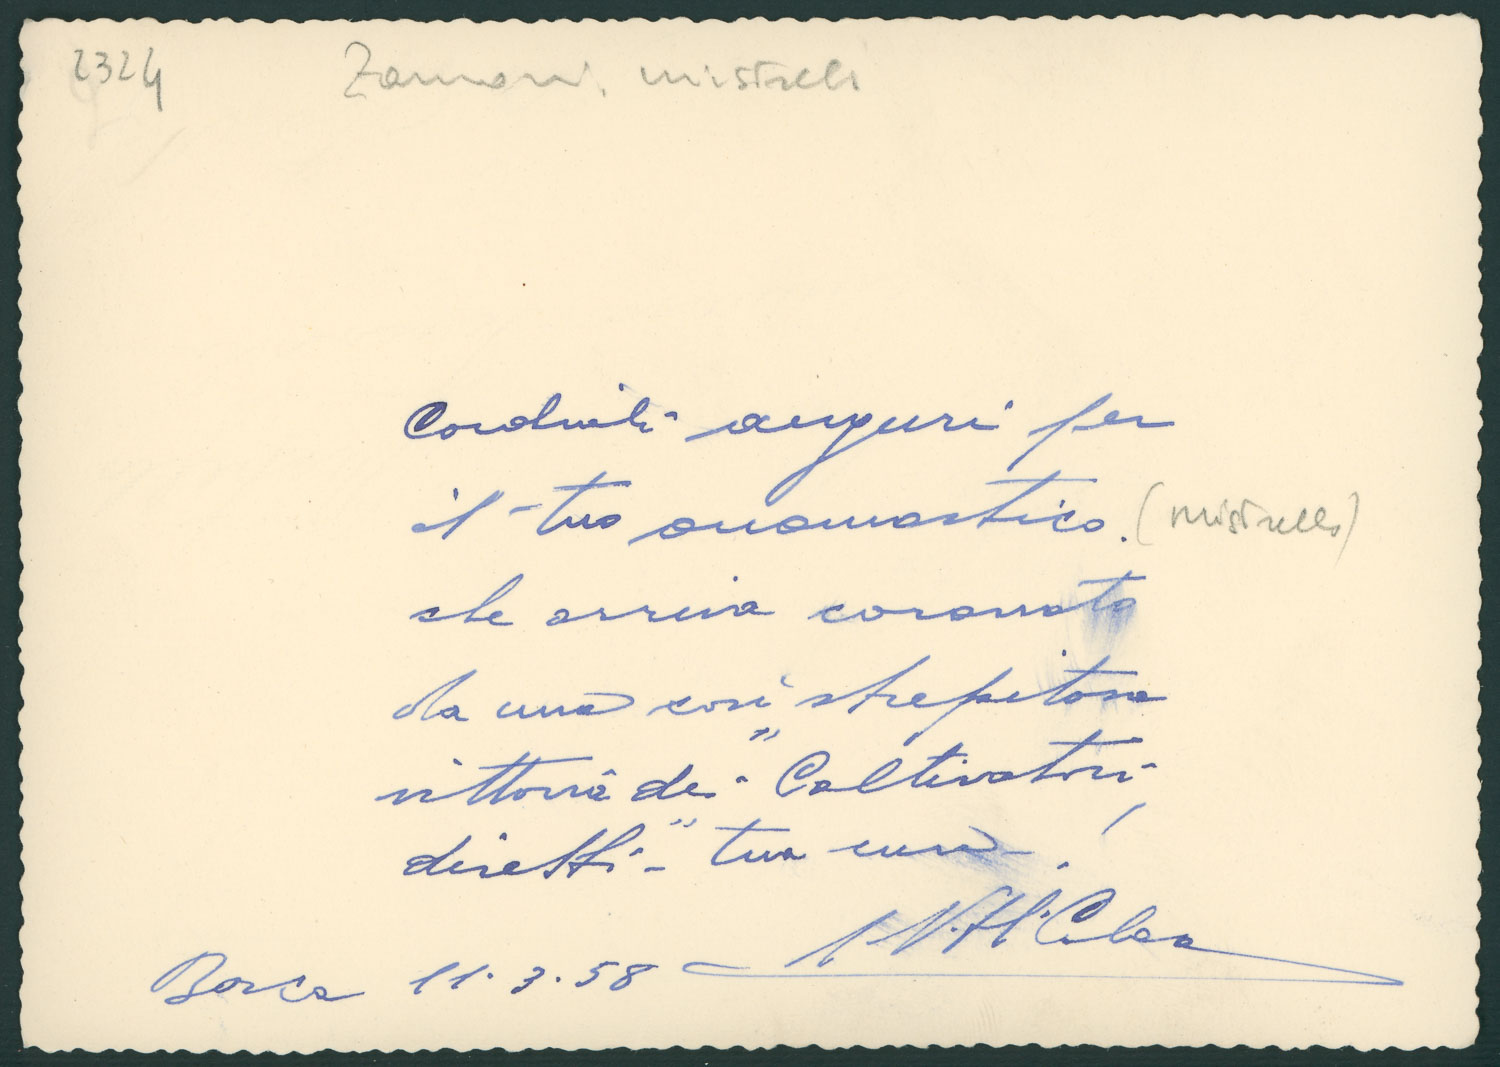 2324 Zamoni, mistrelli
Cordiali auguri per
il tuo onomastico. (mistrello)
che arriva coronato
da una così strepitosa
vittoria dei "Coltivatori
diretti" - tua cura!
Borca 11.3.58